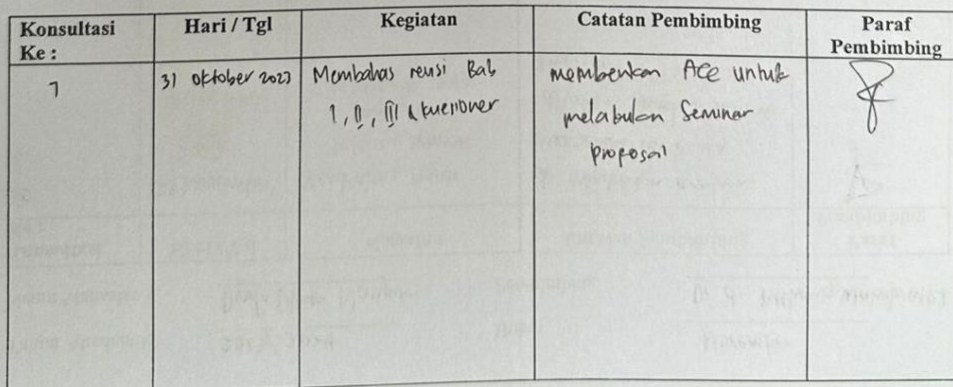 Konsultasi Ke :
Hari / Tgl
Kegiatan
Catatan Pembimbing
Paraf Pembimbing
7
31 Oktober 2023
Membahas revisi Bab
I, II, III & kuesioner
memberikan ACC untuk
melakukan Seminar
proposal